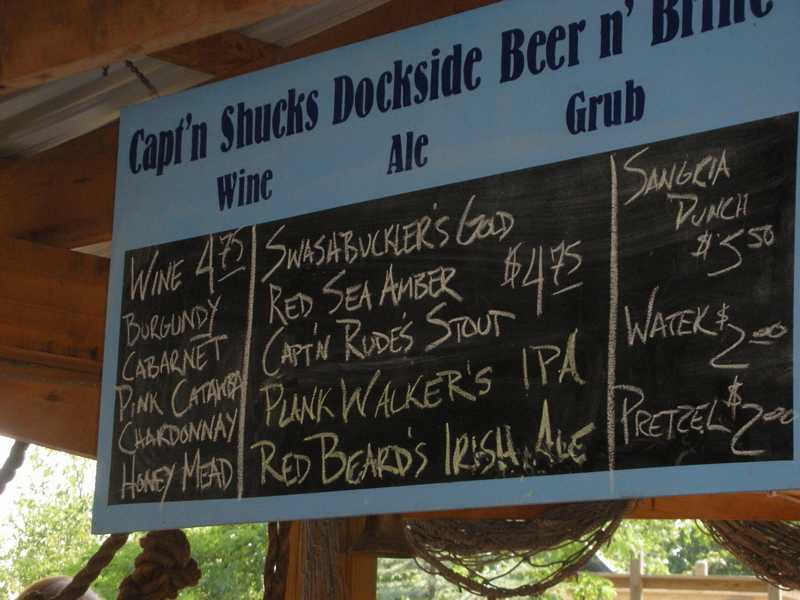 Capt'n Shucks Dockside Beer n' Brine
Wine
Ale
Grub
WINE 4.75
BURGUNDY
CABARNET
PINK CATAWBA
CHARDONNAY
HONEY MEAD
SWASHBUCKLER'S GOLD
RED SEA AMBER $4.75
CAPT'N RUDE'S STOUT
PLANK WALKER'S IPA
RED BEARD'S IRISH ALE
SANGRIA
PUNCH
$5.50
WATER $2.00
PRETZEL $2.00